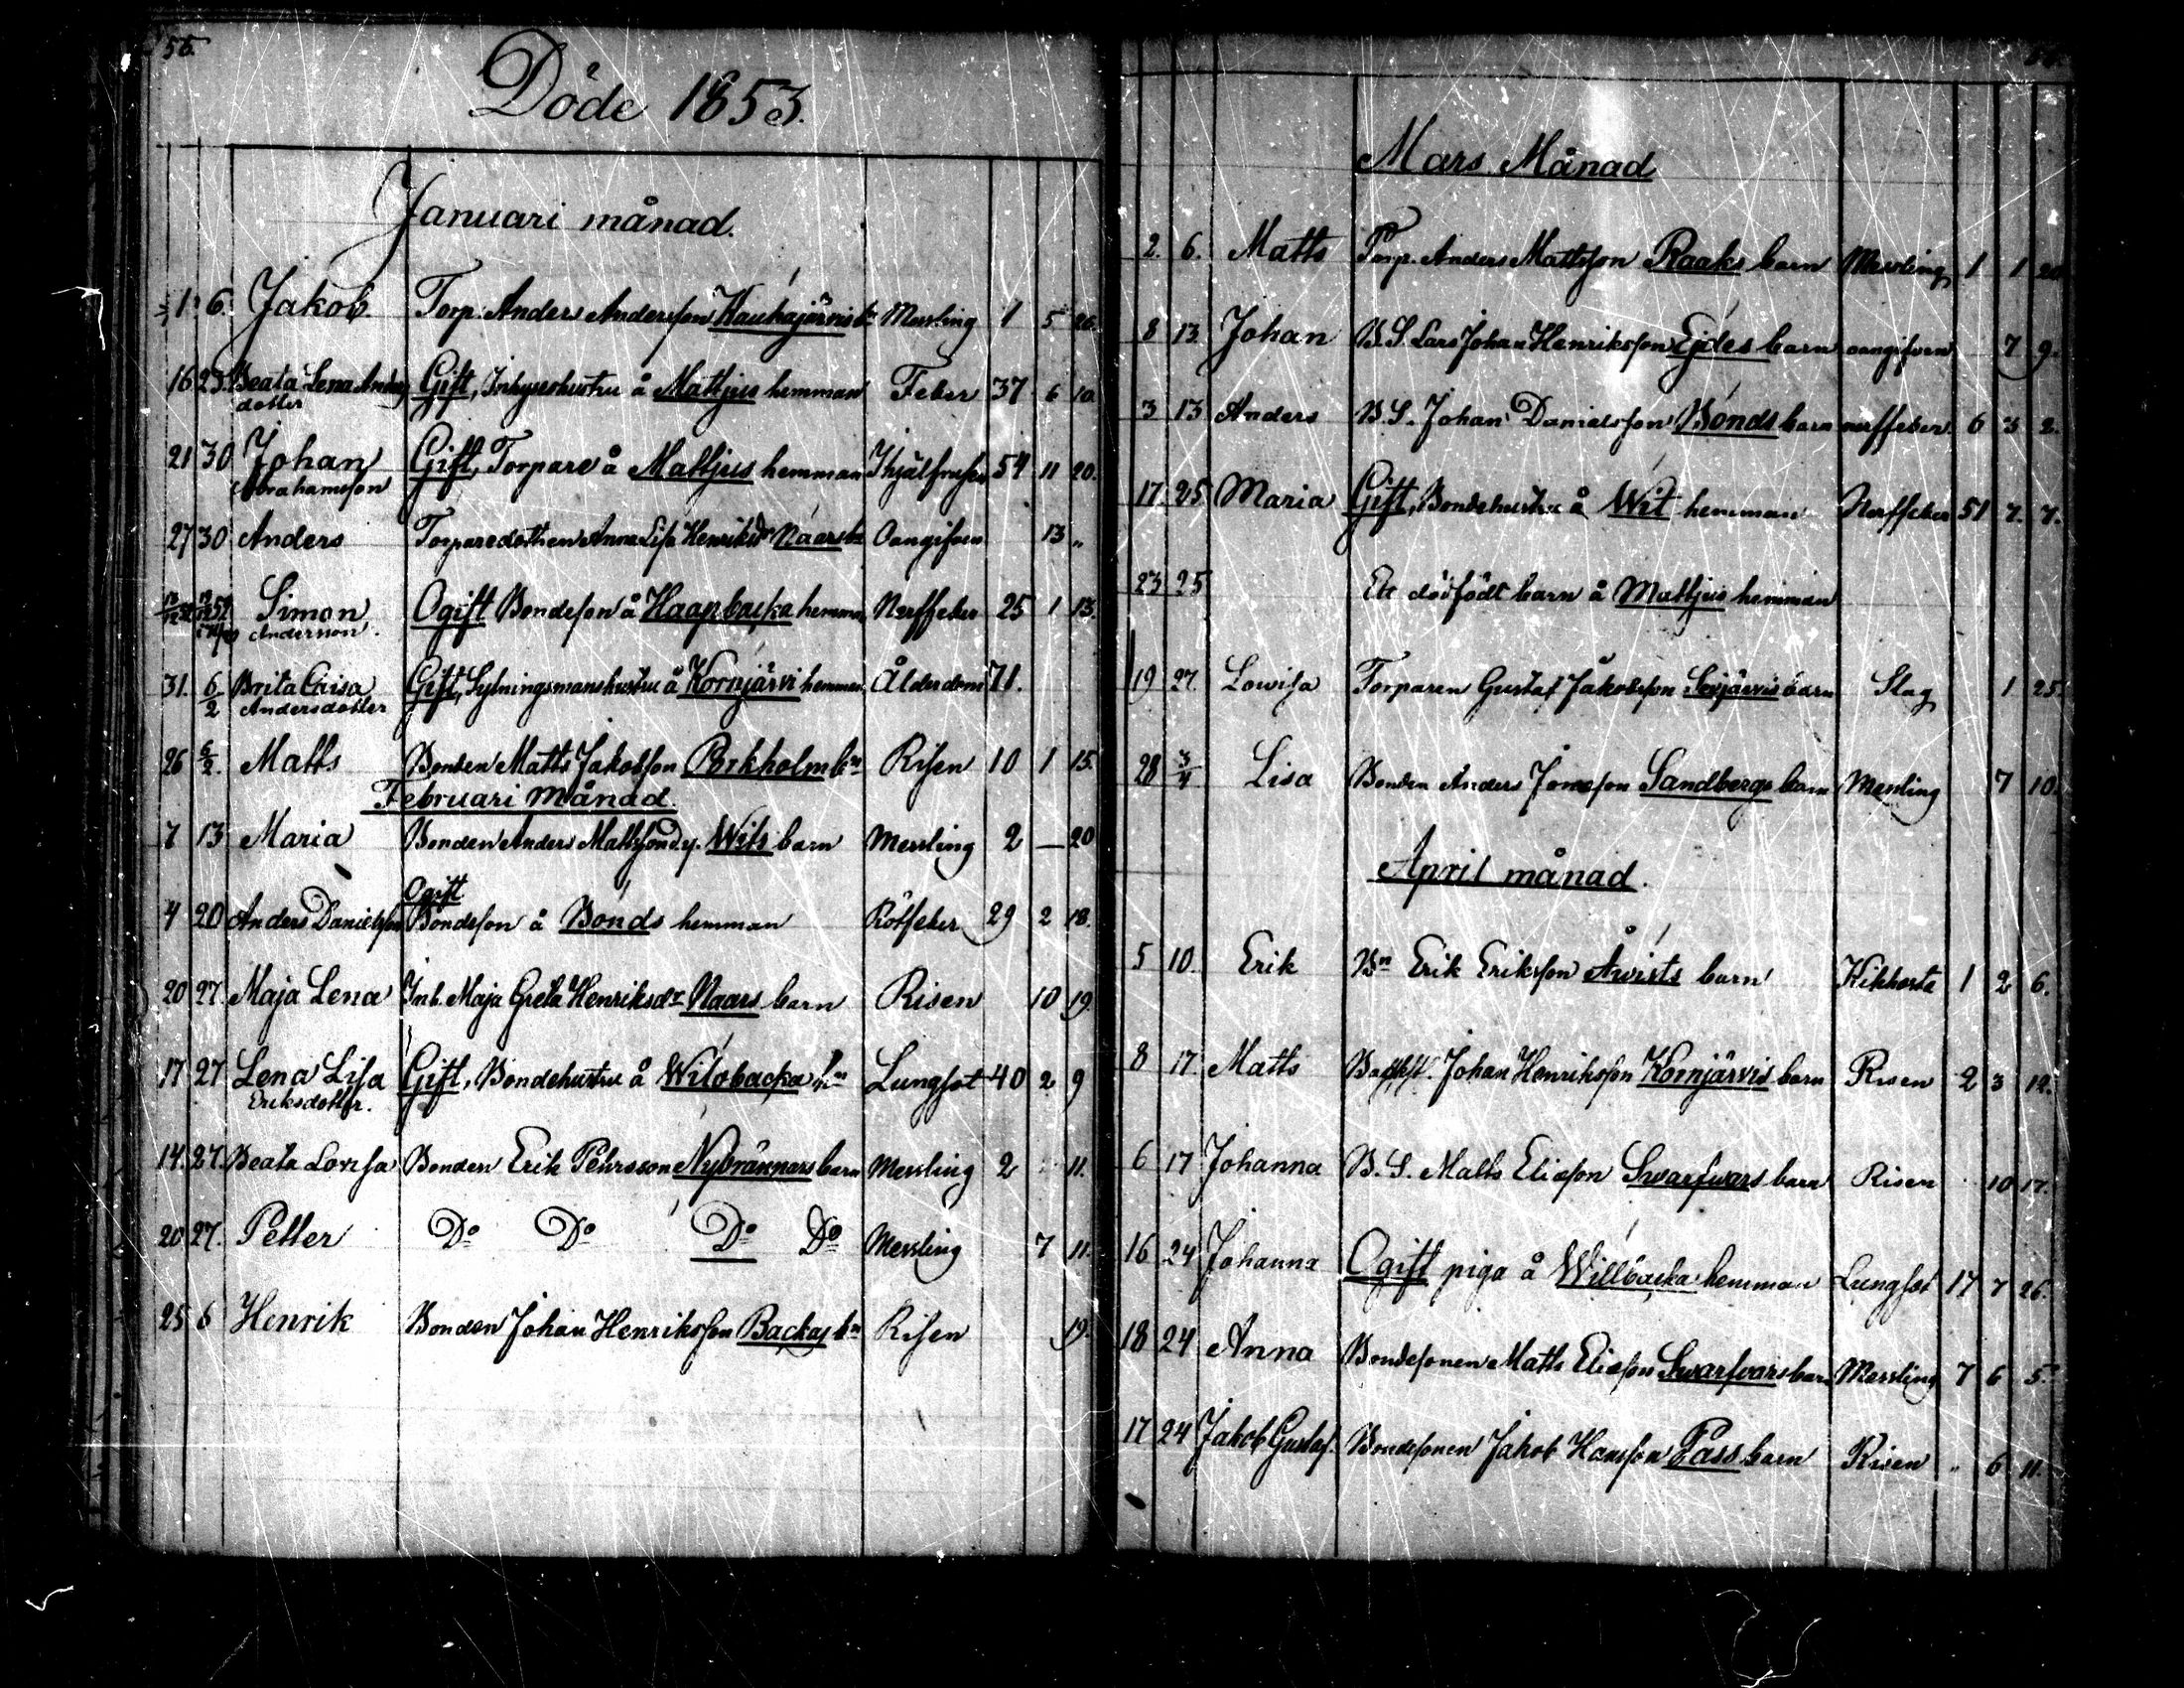 56.
Döde 1853.
Januari månad.
1 6. Jakob Torp. Anders Andersson Kauhajärvis bn Messling 1 5 26.
16 23. Beata Lena Anders Gift, Inhyseshustru å Mattjus hemman Feber 37 6 10.
dotter
21 30 Johan Gift, Torpare å Mattjus hemman 54 11 20.
Abrahamsson
27 30 Anders Torparedottren Anna Lisa Henriksdr Naars bn Oangifven 13 "
Simon Ogift Bondeson å Haapbacka hemman Nerffeber 25 1 13.
Andersson.
31. 6/2 Brita Caisa Gift, Sytningsmanshustru å Kornjärvi hemman Ålderdom 71.
Andersdotter
26 6/2. Matts Bonden Matts Jakobsson Borkholm bn Risen 10 1 15.
Februari Månad.
7 13 Maria Bonden Anders Mattsson d.y. Wits barn Messling 2 — 20
Ogift
4 20 Anders Danielsson Bondeson å Bonds hemman Rötfeber 29 2 18.
20 27. Maja Lena Inh. Maja Greta Henriksdr Naars barn Risen 10 19.
17 27 Lena Lisa Gift, Bondehustru å Wilobacka hn Lungsot 40 2 9
Eriksdotter.
14. 27. Beata Lovisa Bonden Erik Pehrsson Nybrännars barn Messling 2 11.
20 27. Petter Do Do Do Do Messling 7 11.
25 6 Henrik Bonden Johan Henriksson Backas bn Risen 19.
Mars Månad
2. 6. Matts Torp. Anders Mattsson Raaks barn Messling 1 1 20
8 13. Johan B.S. Lars Johan Henriksson Ejdes barn oangifven 7 9.
3 13 Anders B.S. Johan Danielsson Bonds barn nerffeber. 6 3 2.
17. 25 Maria Gift, Bondehustru å Wit hemman Nerffeber 51 7. 7.
23 25 Ett dödfödt barn å Mattjus hemman
19 27. Lowisa Torparen Gustaf Jakobsson Seijärvis barn Slag 1 25.
28 3/4 Lisa Bonden Anders Jonasson Sandbergs barn Messling 7 10.
April månad.
5 10. Erik Bn Erik Eriksson Åwists barn Kikhosta 1 2 6.
8 17 Matts Backst. Johan Henriksson Kornjärvis barn Risen 2 3 12.
6 17 Johanna B.S. Matts Eliasson Swarfwars barn Risen 10 17.
16 24 Johanna Ogift piga å Willbacka hemman Lungsot 17 7 26.
18 24 Anna Bondesonen Matts Eliasson Swarfvars barn Messling 7 6 5.
17 24 Jakob Gustaf. Bondesonen Jakob Hansson Pass barn Risen " 6 11.